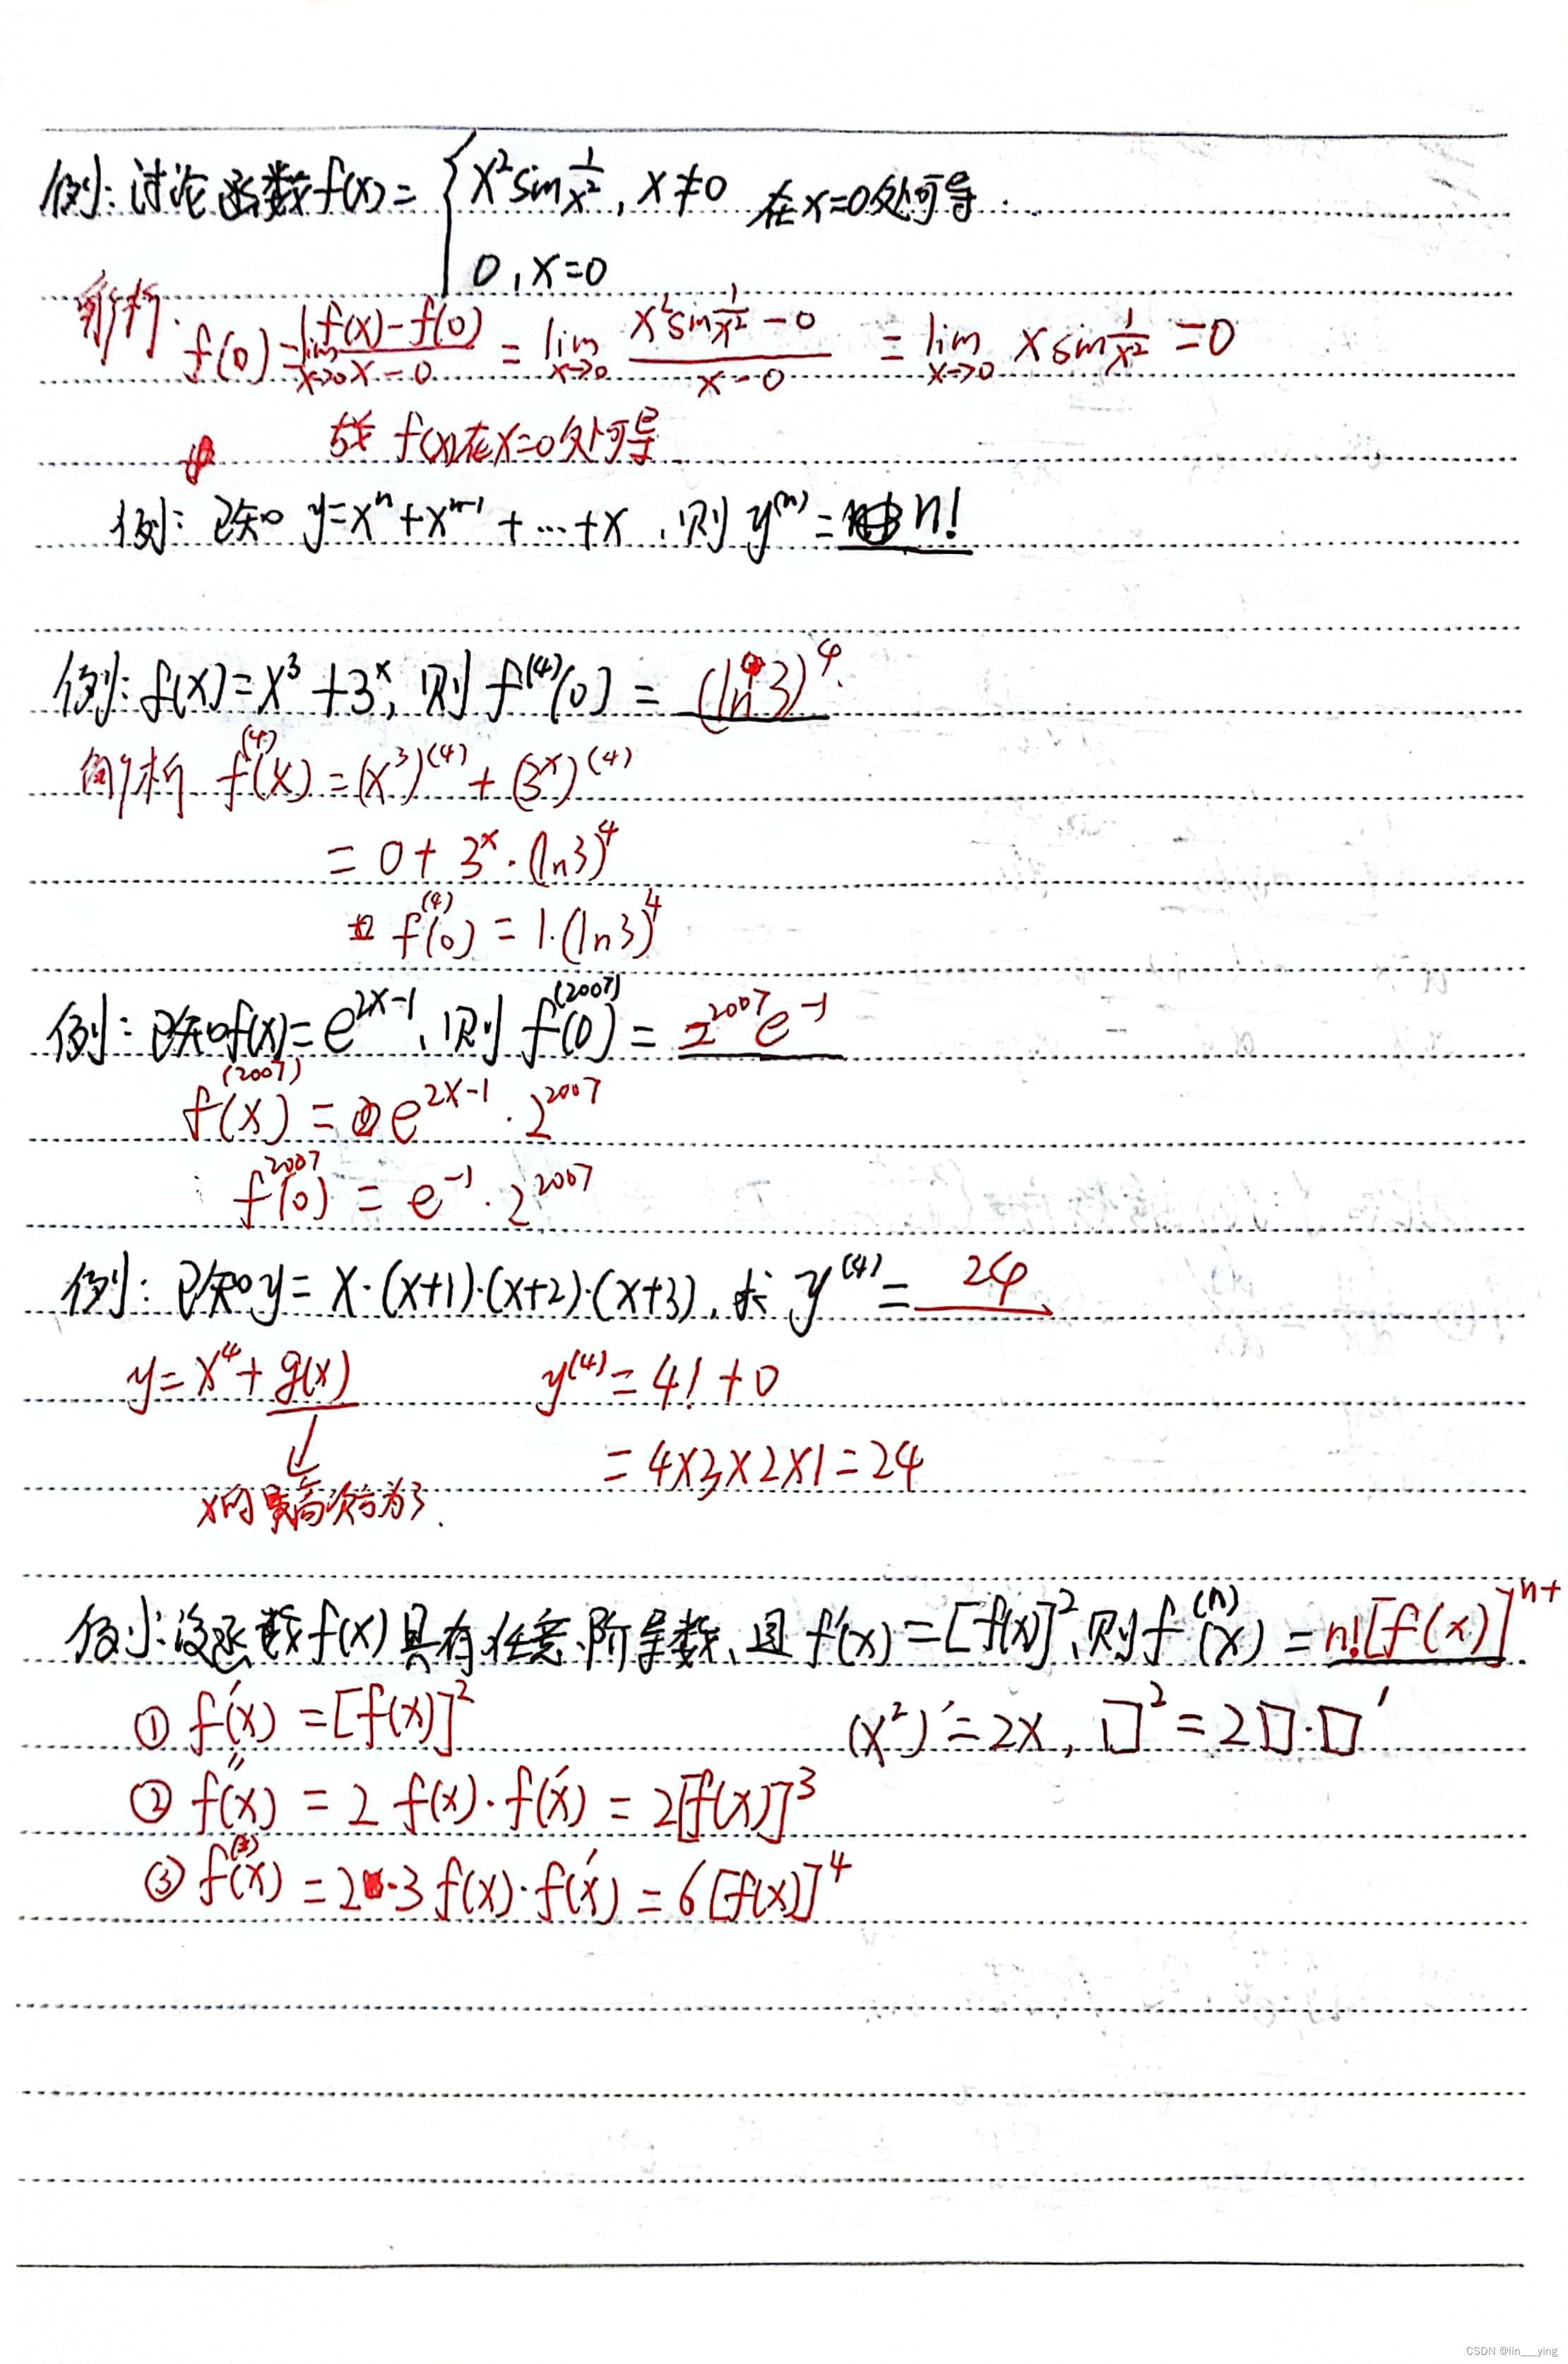 例: 讨论函数f(x)= { x²sin 1/x², x≠0 在x=0处可导.
0, x=0
解析: f(0)=lim x→0 f(x)-f(0)/x-0 = lim x→0 x²sin 1/x² -0/x-0 = lim x→0 x sin 1/x² =0
故 f(x)在x=0处可导
例: 已知 y=xⁿ+xⁿ⁻¹+…+x, 则 y⁽ⁿ⁾= n!
例: f(x)=x³+3ˣ, 则 f⁽⁴⁾(0) = (ln3)⁴.
解析 f⁽⁴⁾(x) =(x³)⁽⁴⁾+(3ˣ)⁽⁴⁾
= 0+ 3ˣ·(ln3)⁴
f⁽⁴⁾(0) = 1·(ln3)⁴
例: 已知f(x)=e²ˣ⁻¹, 则 f⁽²⁰⁰⁷⁾(0) = 2²⁰⁰⁷e⁻¹
f⁽²⁰⁰⁷⁾(x) = e²ˣ⁻¹·2²⁰⁰⁷
f²⁰⁰⁷(0) = e⁻¹·2²⁰⁰⁷
例: 已知y= x·(x+1)·(x+2)·(x+3), 求 y⁽⁴⁾= 24
y=x⁴+g(x) y⁽⁴⁾=4!+0
=4×3×2×1=24
x的最高次方为3.
例: 设函数f(x)具有任意阶导数, 且 f′(x)=[f(x)]², 则f⁽ⁿ⁾(x) =n![f(x)]ⁿ⁺
① f′(x) =[f(x)]² (x²)′=2x, □²=2□·□′
② f″(x) = 2 f(x)·f′(x) = 2[f(x)]³
③ f⁽³⁾(x) =2·3 f(x)·f′(x) = 6[f(x)]⁴
CSDN @lin___ying